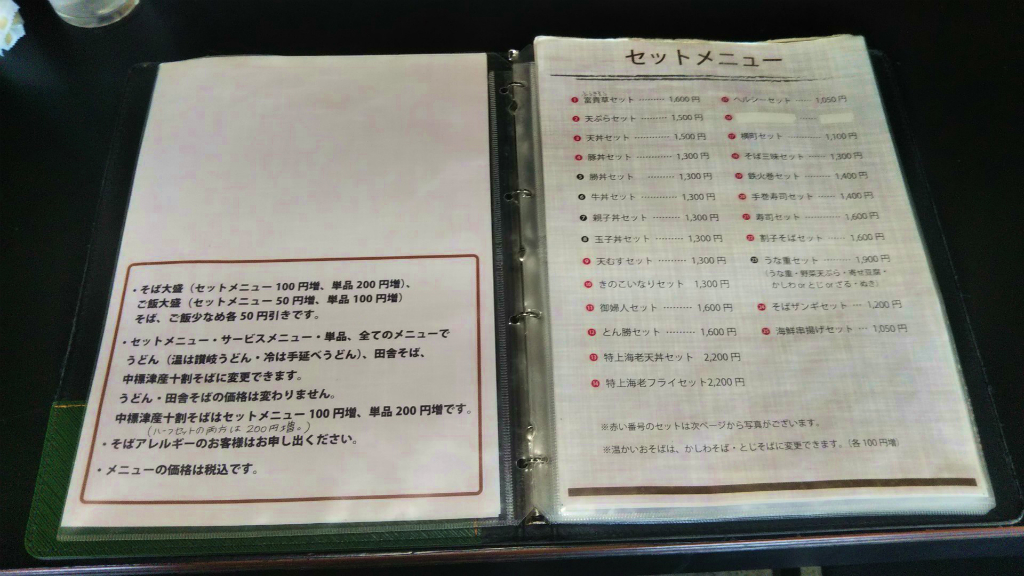 ・そば大盛（セットメニュー 100 円増、単品 200 円増）、
ご飯大盛（セットメニュー 50 円増、単品 100 円増）
そば、ご飯少なめ各 50 円引きです。
・セットメニュー・サービスメニュー・単品、全てのメニューで
うどん（温は讃岐うどん・冷は手延べうどん）、田舎そば、
中標津産十割そばに変更できます。
うどん・田舎そばの価格は変わりません。
中標津産十割そばはセットメニュー 100 円増、単品 200 円増です。
（ハーフセットの両方は 200円増。）
・そばアレルギーのお客様はお申し出ください。
・メニューの価格は税込です。
セットメニュー
❶ 富貴草セット ……… 1,600 円
❷ 天ぷらセット ……… 1,500 円
❸ 天丼セット ……… 1,500 円
❹ 豚丼セット ……… 1,300 円
❺ 勝丼セット ……… 1,300 円
❻ 牛丼セット ……… 1,300 円
❼ 親子丼セット ……… 1,300 円
❽ 玉子丼セット ……… 1,300 円
❾ 天むすセット ……… 1,300 円
❿ きのこいなりセット 1,300 円
⓫ 御婦人セット ……… 1,600 円
⓬ とん勝セット ……… 1,600 円
⓭ 特上海老天丼セット 2,200 円
⓮ 特上海老フライセット2,200 円
ヘルシーセット …… 1,050 円
⓱ 横町セット ……… 1,100 円
⓲ そば三味セット …… 1,300 円
⓳ 鉄火巻セット …… 1,400 円
⓴ 手巻寿司セット … 1,400 円
㉑ 寿司セット ……… 1,600 円
㉒ 割子そばセット … 1,600 円
㉓ うな重セット …… 1,900 円
（うな重・野菜天ぷら・寄せ豆腐・
かしわ or とじ or ざる・ぬき）
㉔ そばザンギセット … 1,200 円
㉕ 海鮮串揚げセット … 1,050 円
※赤い番号のセットは次ページから写真がございます。
※温かいおそばは、かしわそば・とじそばに変更できます。（各 100 円増）